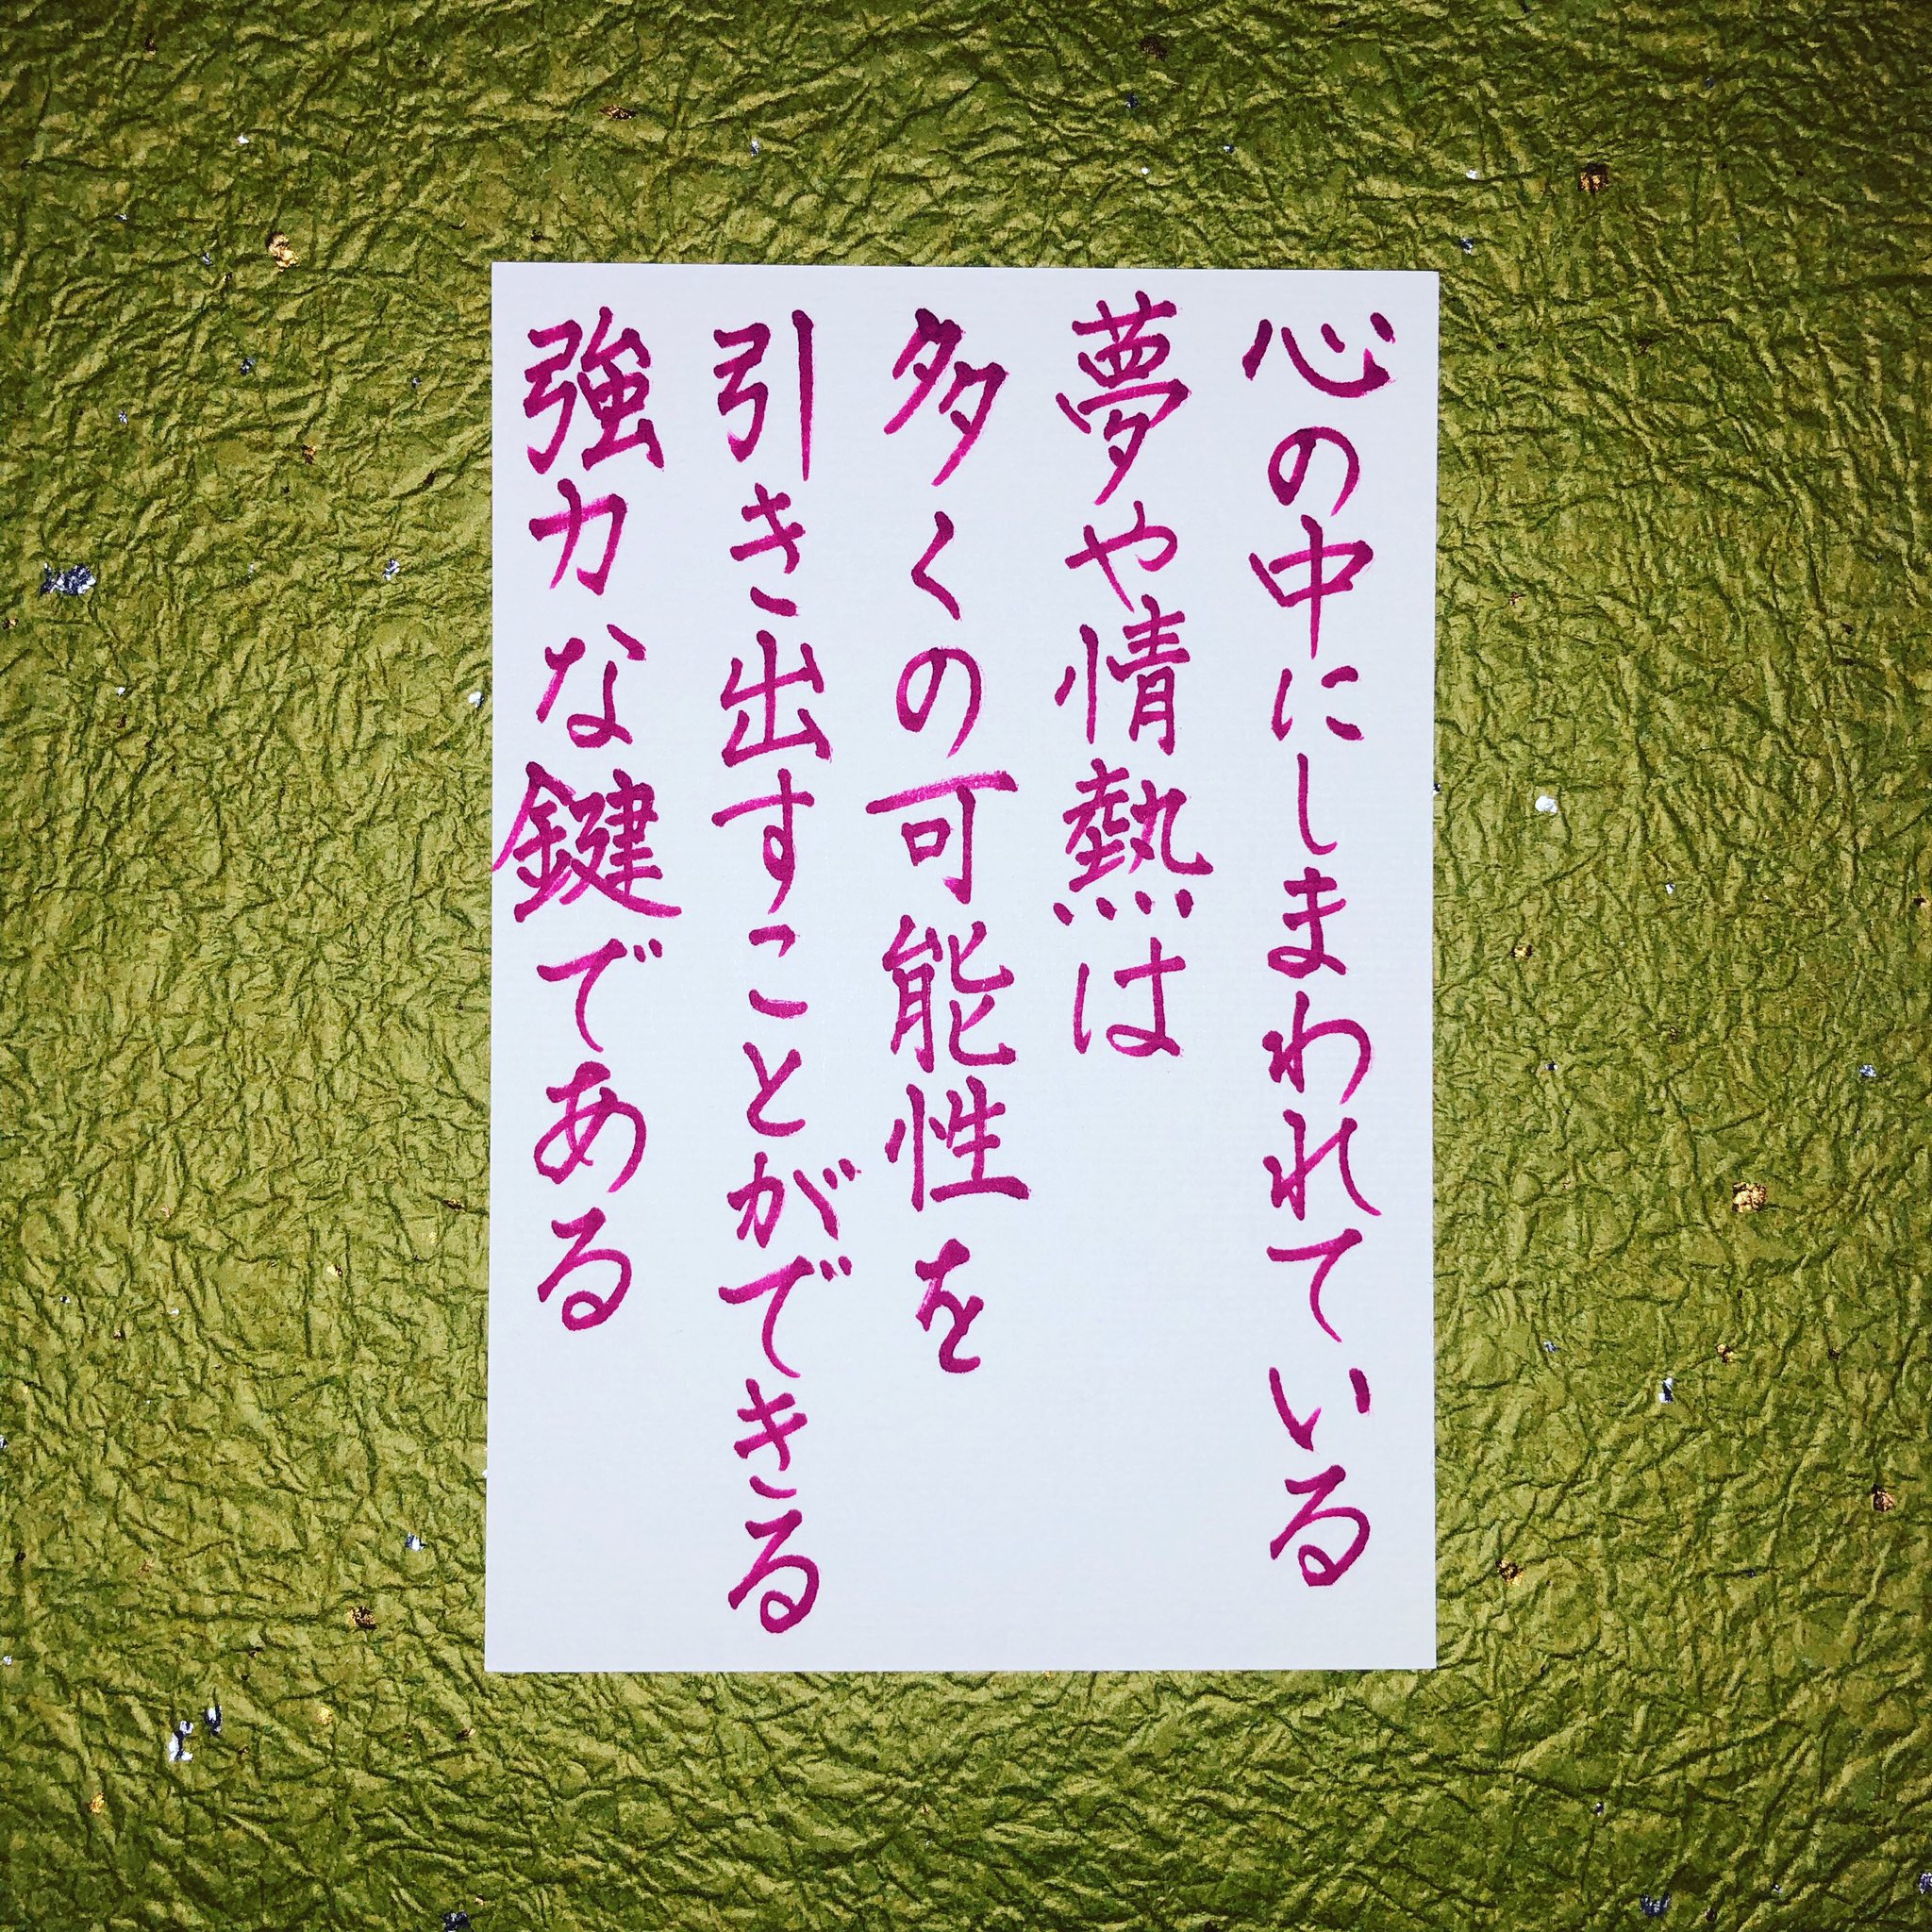 心の中にしまわれている
夢や情熱は
多くの可能性を
引き出すことができる
強力な鍵である